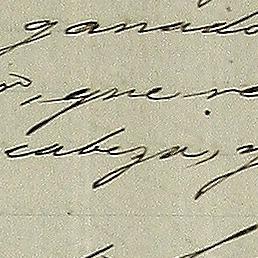 ganado
, que
cabeza, y